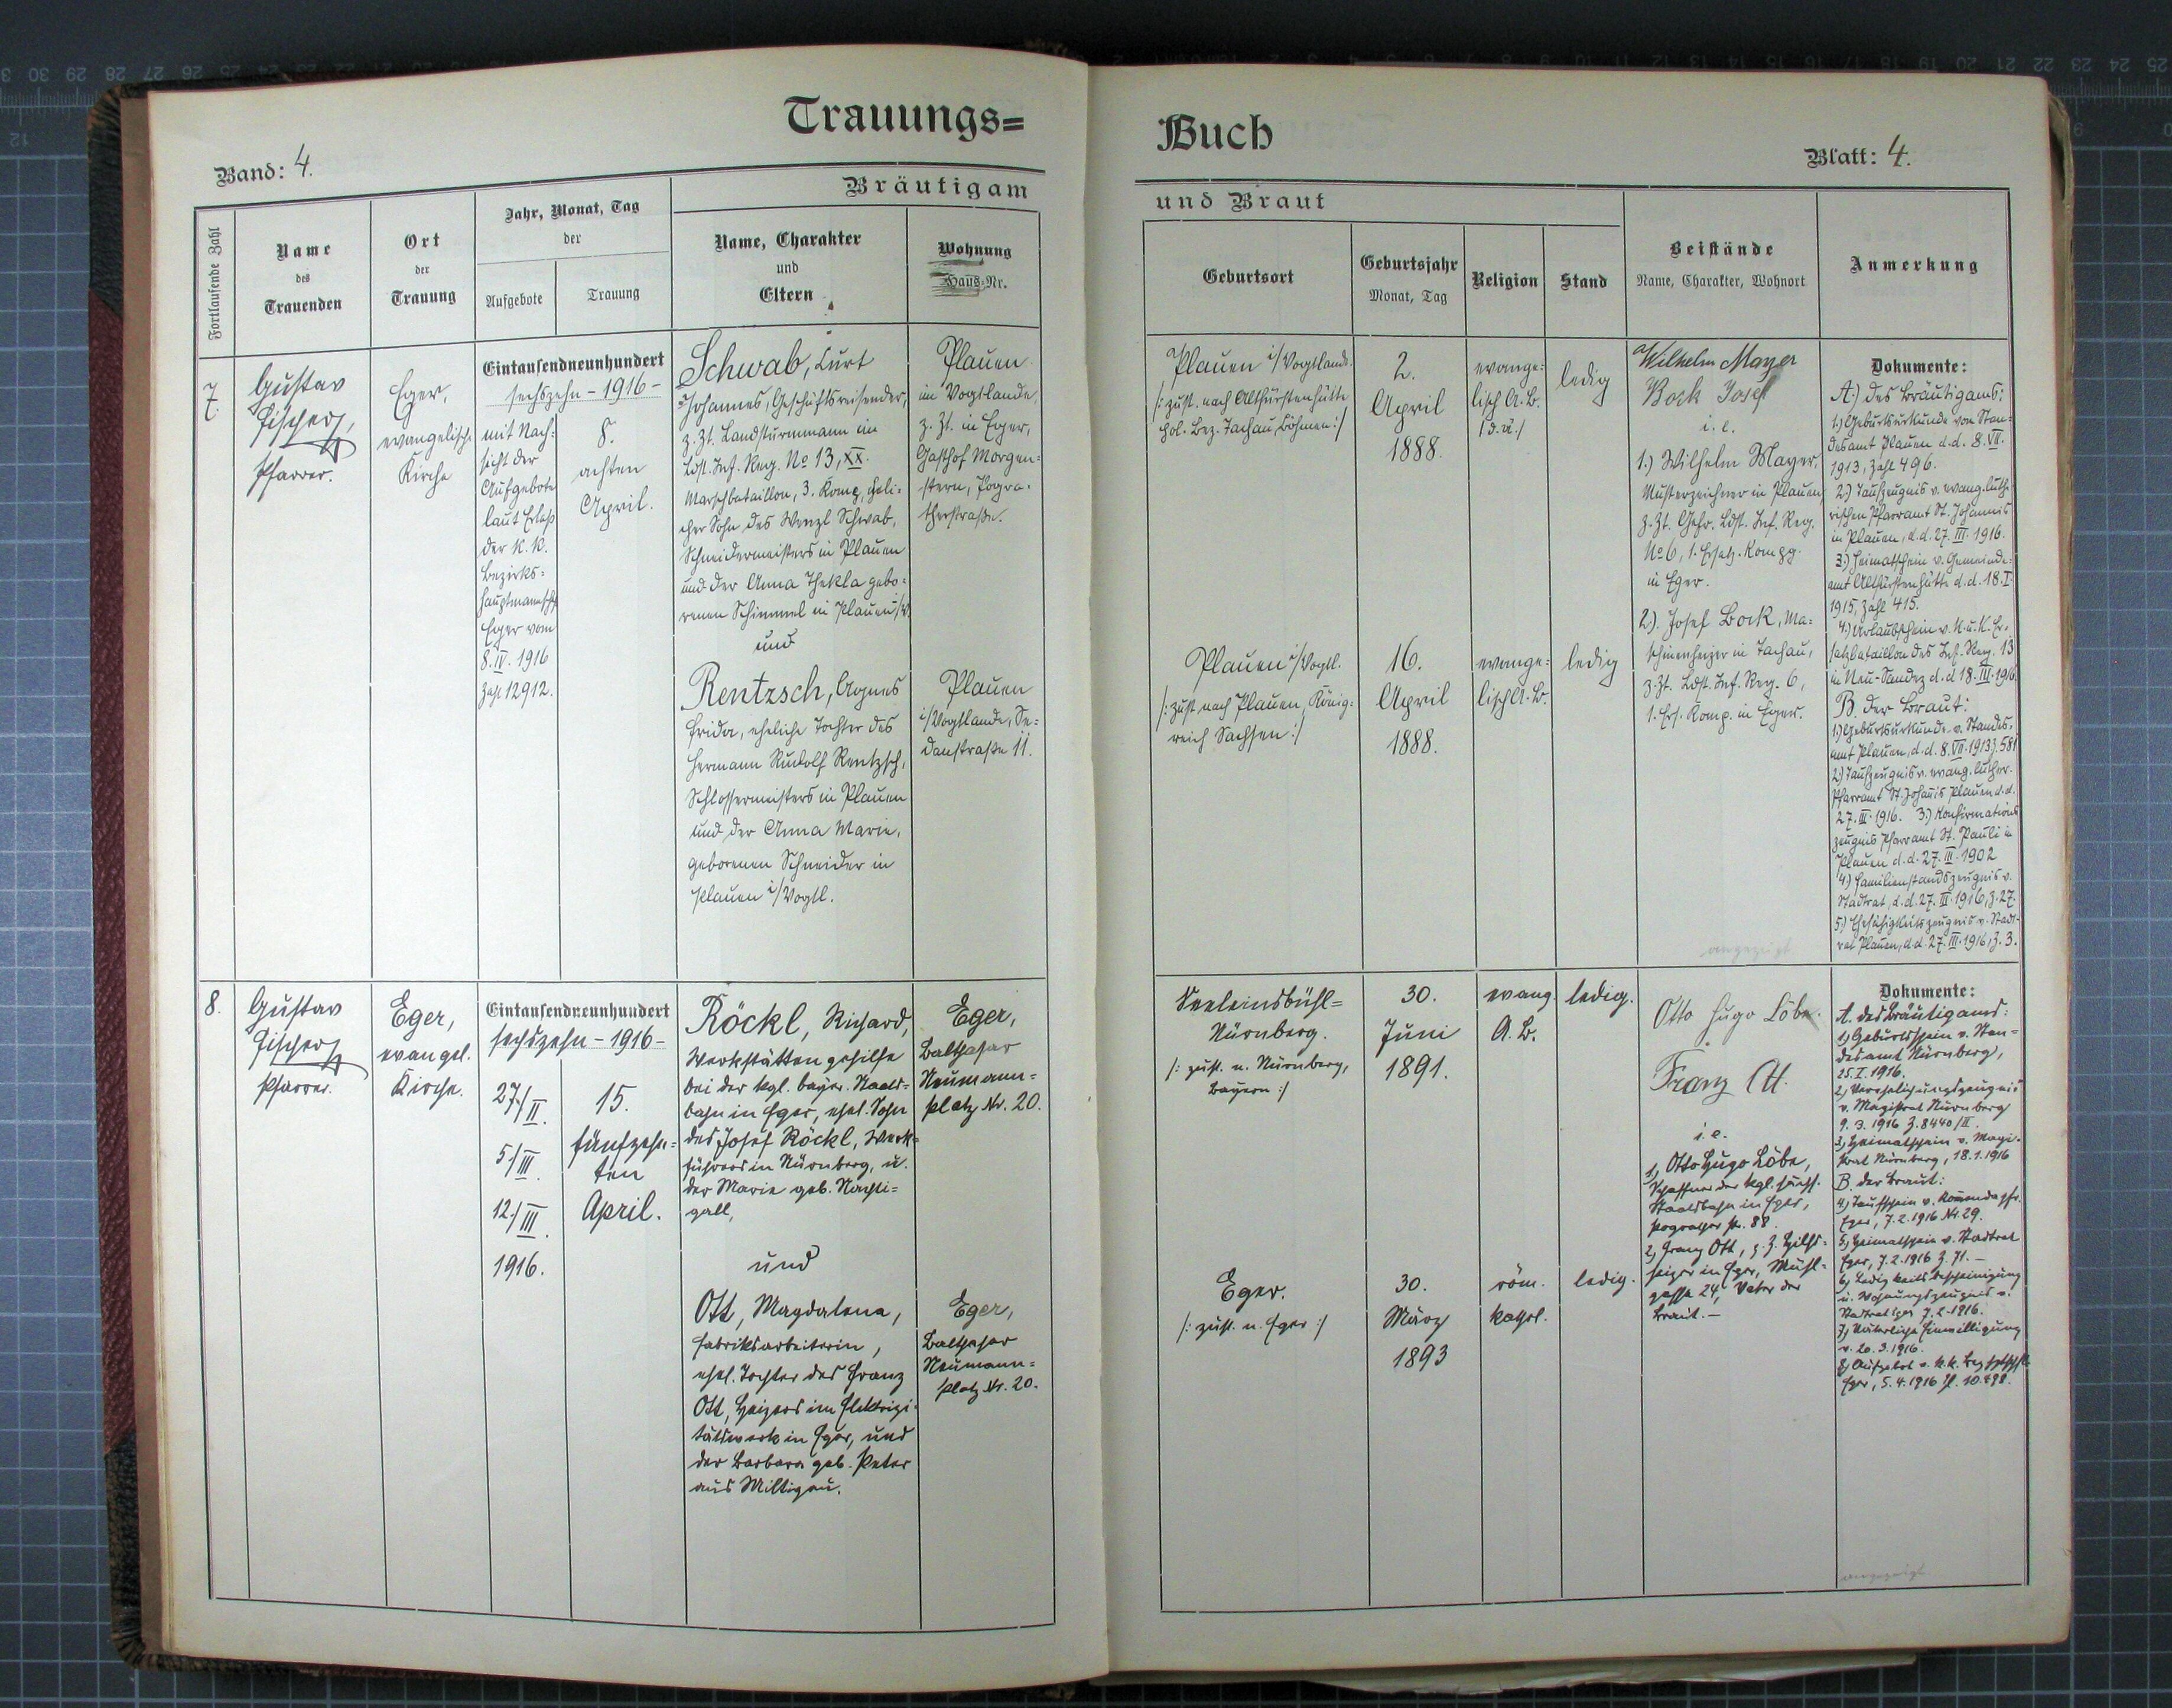 Trauungs=
Buch
Band: 4.
Blatt: 4.
Bräutigam
und Braut
Fortlaufende Zahl
Name
des
Trauenden
Ort
der
Trauung
Jahr, Monat, Tag
der
Aufgebote
Trauung
Name, Charakter
und
Eltern
Wohnung
Haus-Nr.
Geburtsort
Geburtsjahr
Monat, Tag
Religion
Stand
Beistände
Name, Charakter, Wohnort
Anmerkung
7.
Gustav
Fischer,
Pfarrer.
Eger,
evangelische
Kirche
Eintausendneunhundert
sechszehn - 1916 -
mit Nach=
sicht der
Aufgebote
laut Erlaß
der k. k.
Bezirks=
hauptmannschft
Eger vom
8. IV. 1916
Zahl 12912.
8.
achten
April.
Schwab, Curt
Johannes, Geschäftsreisender,
z. Zt. Landsturmmann im
Ldst. Inf. Reg. No 13, XX.
Marschbataillon, 3. Komp., eheli=
cher Sohn des Wenzl Schwab,
Schneidermeisters in Plauen
und der Anna Thekla gebo=
renen Schimmel in Plauen i/V.
und
Rentzsch, Agnes
Frida, eheliche Tochter des
Hermann Rudolf Rentzsch,
Schlossermeisters in Plauen
und der Anna Marie,
geborenen Schneider in
Plauen i/Vogtl.
Plauen
im Vogtlande,
z. Zt. in Eger,
Gasthof Morgen=
stern, Pogra=
therstraße.
Plauen
i/Vogtlande, Se=
danstraße 11.
Plauen i/Vogtlande.
/: zust. nach Altfürstenhütte
pol. Bez. Tachau, Böhmen :/
2.
April
1888.
evange=
lisch A. B.
ledig
Plauen i/Vogtl.
/: zust. nach Plauen, König=
reich Sachsen :/
16.
April
1888.
evange=
lisch A. B.
ledig
Wilhelm Mayer
Bock Josef
i. e.
1.) Wilhelm Mayer,
Musterzeichner in Plauen
z. Zt. Gefr. Ldst. Inf. Reg.
No 6, 1. Ersatz-Kompg.
in Eger.
2). Josef Bock, Ma=
schinenheizer in Tachau,
z. Zt. Ldst. Inf. Reg. 6,
1. Ers. Komp. in Eger.
Dokumente:
A.) des Bräutigams:
1.) Geburtsurkunde von Stan=
desamt Plauen d. d. 8. VII.
1913, Zahl 496.
2.) Taufzeugnis v. evang. luthe=
rischen Pfarramt St. Johannis
in Plauen, d. d. 27. III. 1916.
3.) Heimatschein v. Gemeinde=
amt Altfürstenhütte d. d. 18. I.
1915, Zahl 415.
4.) Urlaubschein v. k. u. k. Er=
satzbataillon des Inf.-Reg. 13
in Neu-Sandez d. d. 18. III. 1916.
B. der Braut:
1.) Geburtsurkunde v. Standes=
amt Plauen, d. d. 8. VII. 1913 Z. 581
2.) Taufzeugnis v. evang. luther.
Pfarramt St. Johannis Plauen d. d.
27. III. 1916. 3.) Konfirmations
zeugnis Pfarramt St. Pauli in
Plauen d. d. 27. III. 1902
4.) Familienstandszeugnis v.
Stadtrat, d. d. 27. III. 1916, Z. 27.
5.) Ehefähigkeitszeugnis v. Stadt=
rat Plauen, d. d. 27. III. 1916, Z. 3.
angezeigt
8.
Gustav
Fischer
Pfarrer.
Eger,
evangel.
Kirche.
Eintausendneunhundert
sechszehn - 1916 -
27./II.
5./III.
12./III.
1916.
15.
fünfzehn=
ten
April.
Röckl, Richard,
Werkstättengehilfe
bei der kgl. bayer. Staats=
bahn in Eger, ehel. Sohn
des Josef Röckl, Werk=
führers in Nürnberg, u.
der Marie geb. Nachti=
gall,
und
Ott, Magdalena,
Fabriksarbeiterin,
ehel. Tochter des Franz
Ott, Heizers im Elektrizi=
tätswerk in Eger, und
der Barbara geb. Peter
aus Miltigau.
Eger,
Balthasar
Neumann=
platz Nr. 20.
Eger,
Balthasar
Neumann=
platz Nr. 20.
Nürnberg.
/: zust. n. Nürnberg,
Bayern :/
30.
Juni
1891.
evang.
A. B.
ledig.
Eger.
/: zust. n. Eger :/
30.
März
1893
röm.
kathol.
ledig.
Otto Hugo Löbe.
Franz Ott.
i. e.
1, Otto Hugo Löbe,
Schaffner der kgl. sächs.
Staatsbahn in Eger,
Pograther str. 88.
2, Franz Ott, z. Z. Hilfs=
heizer in Eger, Mühl=
gasse 24, Vater der
Braut. -
Dokumente:
A. des Bräutigams:
1) Geburtsschein v. Stan=
desamt Nürnberg,
25. I. 1916.
2) Verehelichungszeugnis
v. Magistrat Nürnberg
9. 3. 1916 Z. 8440/II.
3) Heimatschein v. Magi=
strat Nürnberg, 18. 1. 1916
B. der Braut:
4) Taufschein v.
Eger, 7. 2. 1916 Nr. 29.
5) Heimatschein v. Stadtrat
Eger, 7. 2. 1916 Z. 71. -
6) Ledigkeitsbescheinigung
u. Wohnungszeugnis v.
Stadtrat Eger 7. 2. 1916.
7) Väterliche Einwilligung
v. 20. 3. 1916.
8) Aufgebot v. k. k.
Eger, 5. 4. 1916
angezeigt